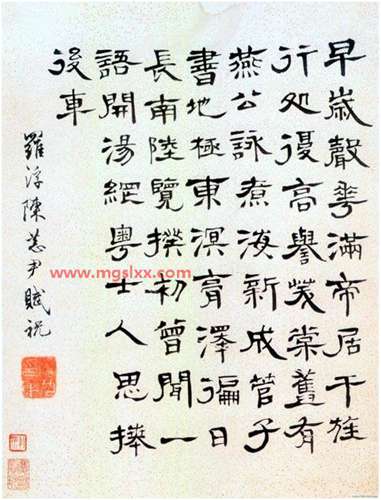 早歲聲華滿帝居干旌
行处復高譽茇棠舊有
燕公詠煮海新成管子
書地極東溟膏澤徧日
長南陸覽揆初曾聞一
語開湯網粵士人思捧
後車
羅浮陳恭尹賦祝
www.mgslxx.com